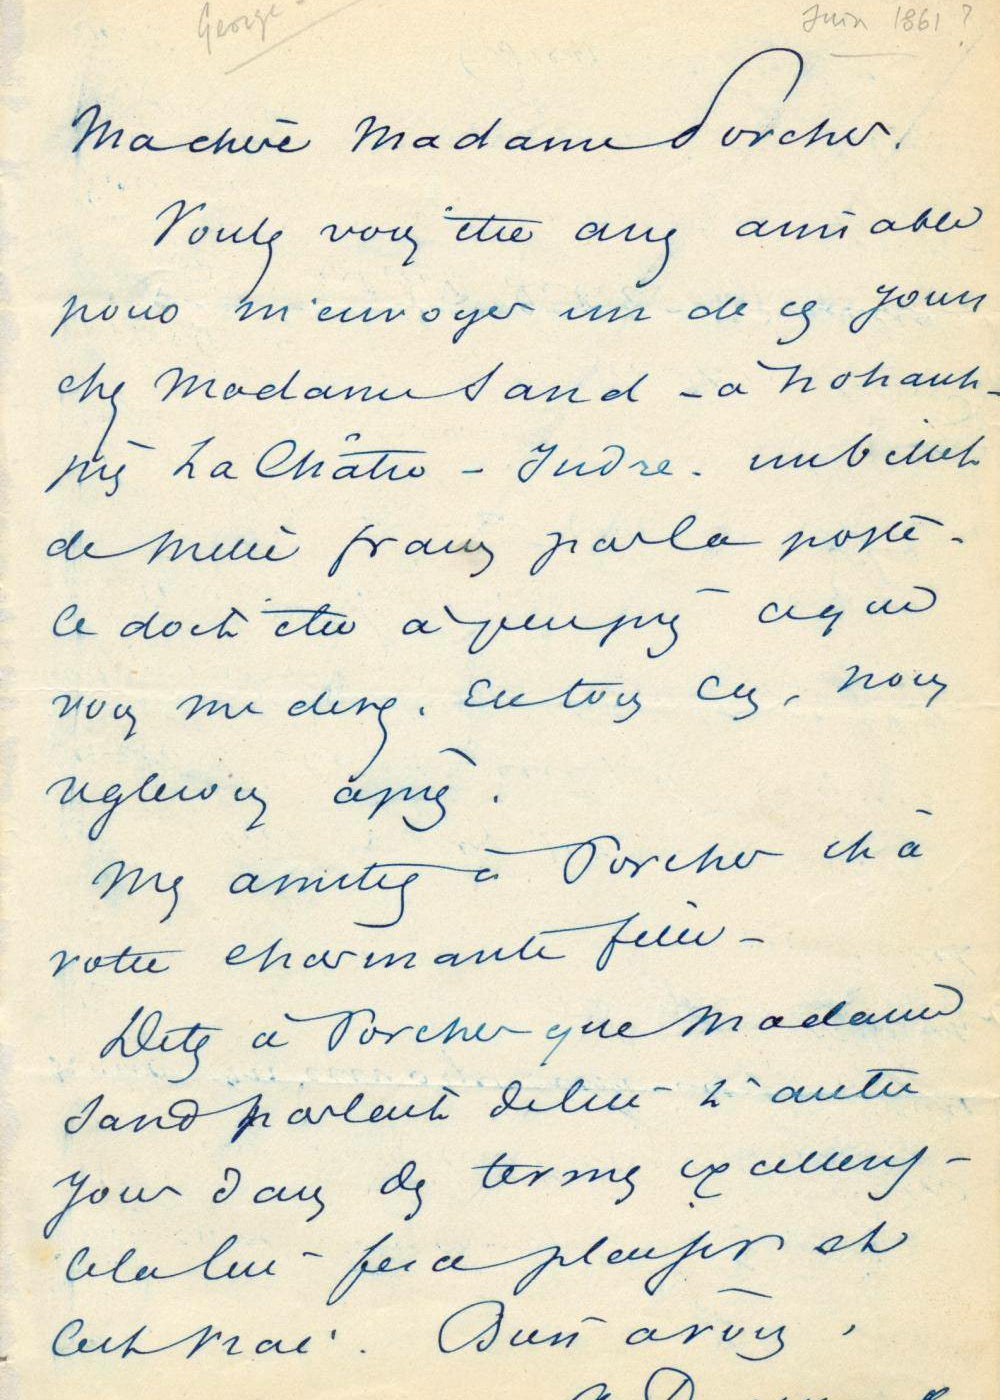 George
Juin 1861?
Ma chere Madame Porcher.
Voulez vous être assez aimable
pour m'envoyer un de ces jours
chez Madame Sand – à Nohant –
près La Châtre – Indre. un billet
de mille francs par la poste –
Ce doit être à peu près ce que
vous me devez. En tous cas, nous
reglerons après.
Mes amities à Porcher et à
votre charmante fille –
Dites à Porcher que Madame
Sand parlait de lui l'autre
jour dans des termes excellens –
Cela lui fera plaisir et
C'est vrai. Bien à vous,